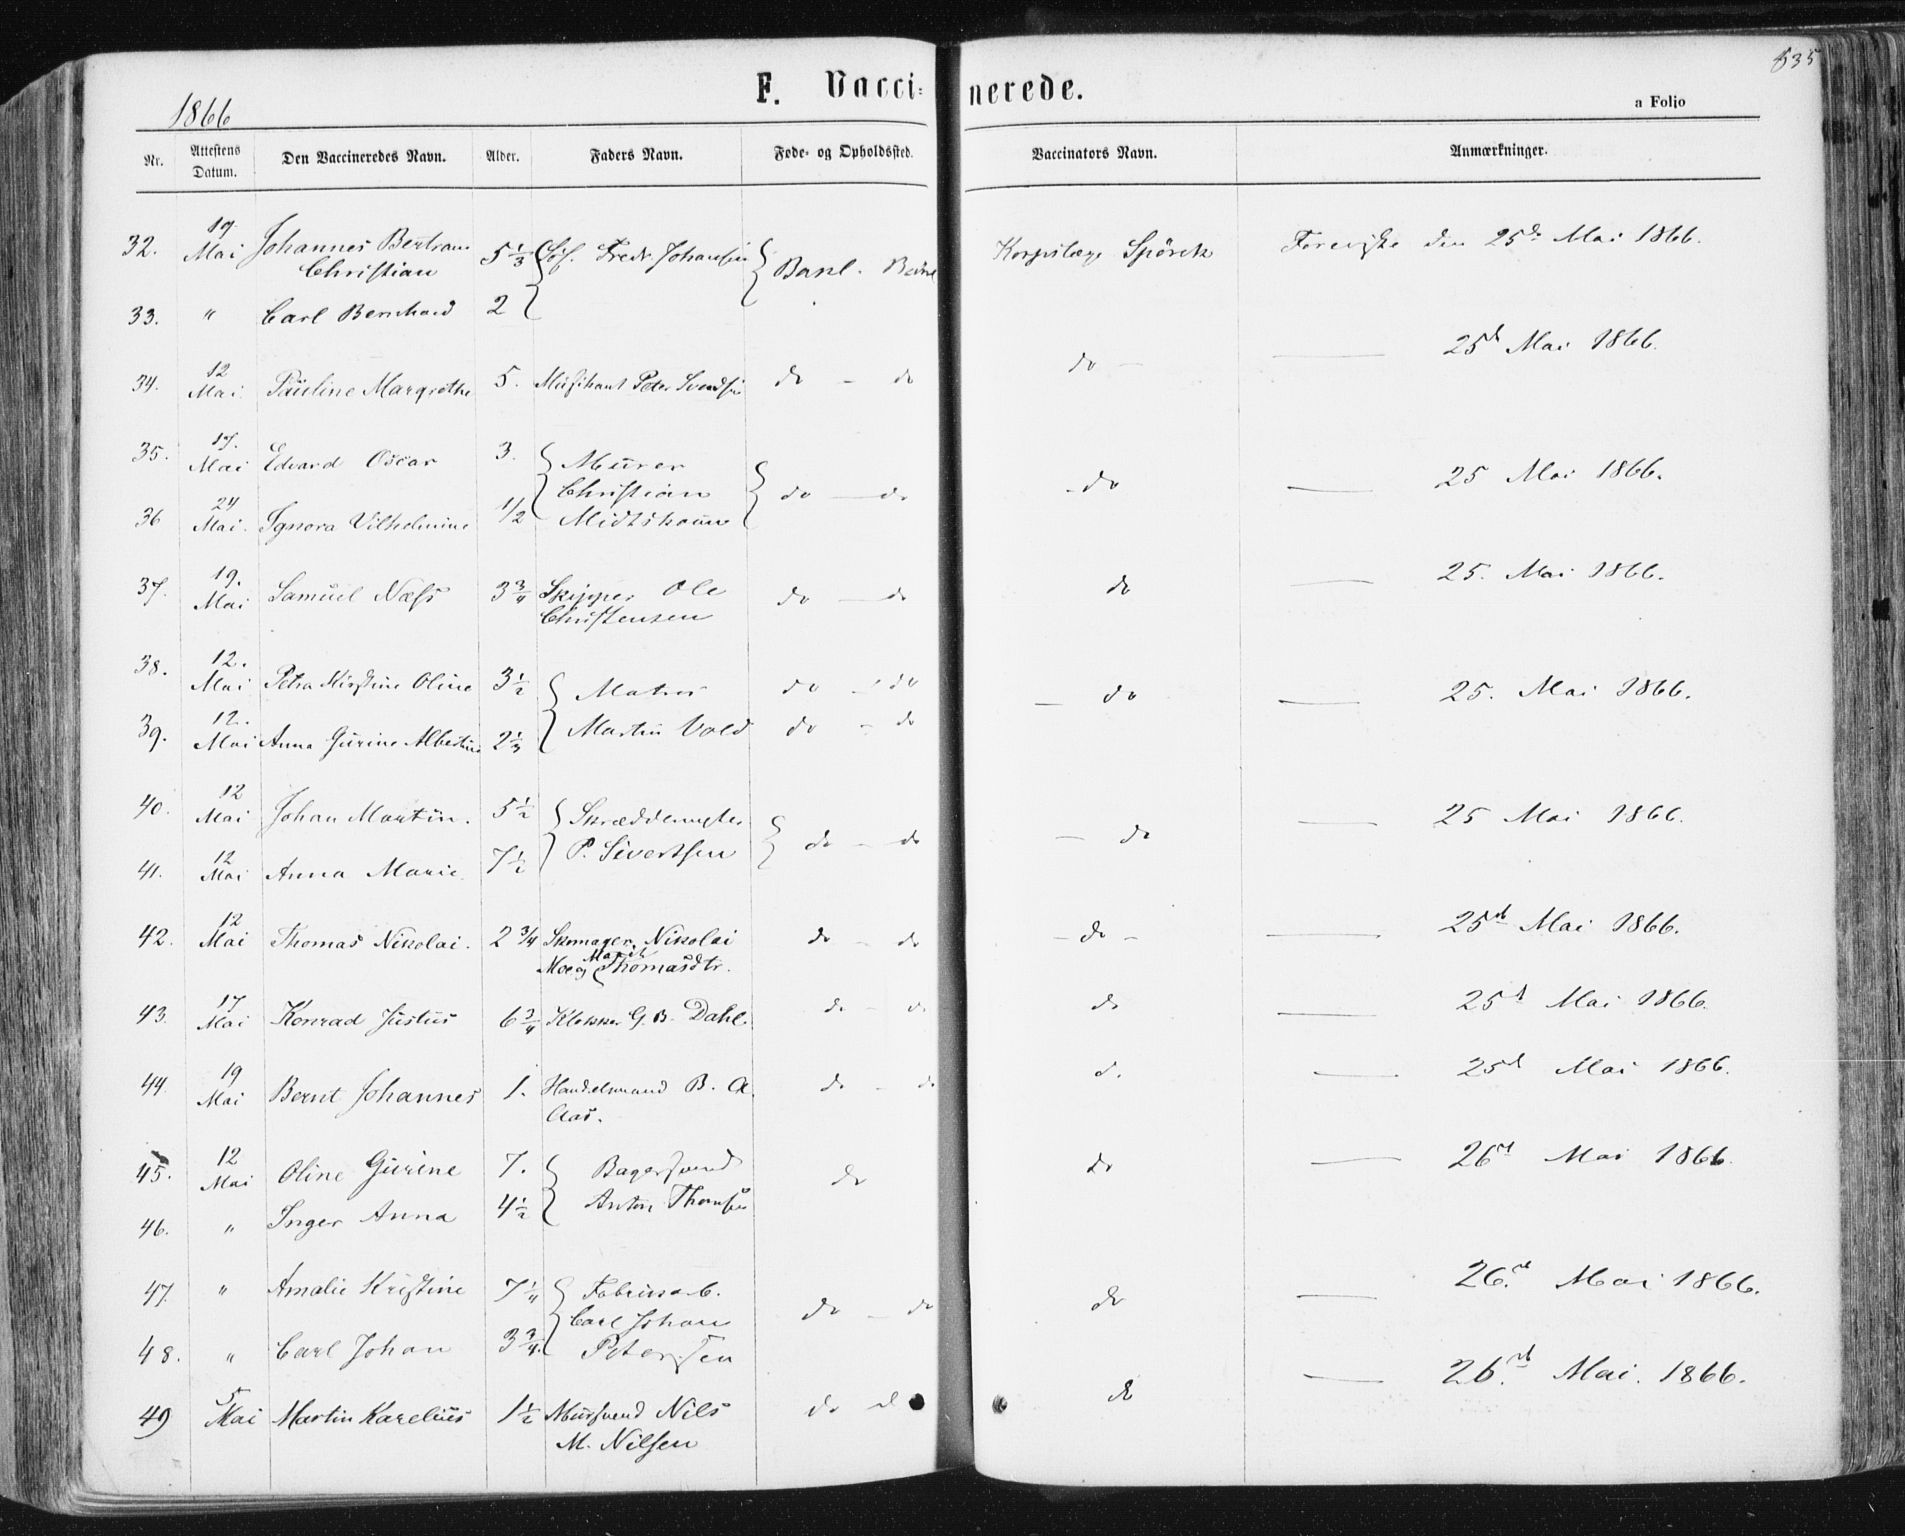 535
F. Vacci-nerede.
1866
a Folio
Nr. Attestens Datum. Den Vaccineredes Navn. Alder. Faders Navn. Føde- og Opholdssted. Vaccinators Navn. Anmærkninger.
32. 19 Mai Johannes Bertram 5 1/3 Fredr. Johansen Bakl. Korpslæge Spörck Foreviste den 25de Mai 1866.
Christian
33. " Carl Bernhard 2
34. 12 Mai Pauline Margrethe 5. Musikant Peter Svendsen do - do do - — 25de Mai 1866.
35. 17. Mai Edvard Oscar 3. Murer
Christian do — do do — 25 Mai 1866.
36 24 Mai. Ignora Vilhelmine 1/2 Midtshaun
37. 19. Mai Samuel Næss 3 3/4 Skipper Ole do — do do — 25. Mai 1866.
Christensen
38. 12. Mai Petra Kirstine Oline 3 1/2 Matros do - do — do — 25. Mai 1866.
39. 12. Mai Anna Gurine Albertine 2 1/3 Martin Vold do - do
40. 12 Mai Johan Martin. 5 1/2 Skræddermester
P. Sivertsen do - do — do — 25 Mai 1866.
41. 12 Mai Anna Marie 7 1/2
42. 12 Mai Thomas Nikolai. 2 3/4 Skomager Nikolai do - do - do - — 25de Mai 1866.
Moe og Marit Thomasdtr.
43. 17 Mai Konrad Justus 6 3/4 Klokker G. B. Dahl do - do do — 25de Mai 1866.
44. 19 Mai Bernt Johannes 1. Handelsmand B. A. do - do do — 25de Mai 1866.
Aas.
45. 12 Mai Oline Gurine 7. Bagersvend do do — 26de Mai 1866.
46. " Inger Anna 4 1/2 Anton Thomsen
47. " Amalie Kristine 7 1/4 Fabriksarb.
Carl Johan do - do do — 26de Mai 1866.
48. " Carl Johan 3 3/4. Petersen
49 5 Mai Martin Karelius 1 1/2 Mursvend Nils do do do — 26de Mai. 1866.
M. Nilsen